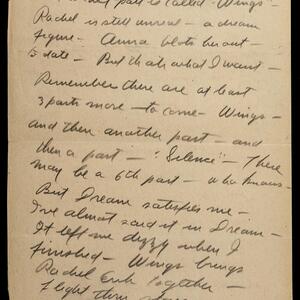 part is called Wings -
Rachel is still unreal - a dream
figure - Anna blots her out
to date - But that's what I want -
Remember there are at least
3 parts more - to come - Wings -
and then another part - and
then a part - "Silence" - There
may be a 6th part - who knows -
But Dream satisfies me -
I've almost said it in Dream -
It left me dizzy when I
finished - Wings brings
Rachel Erik together -
Flight then